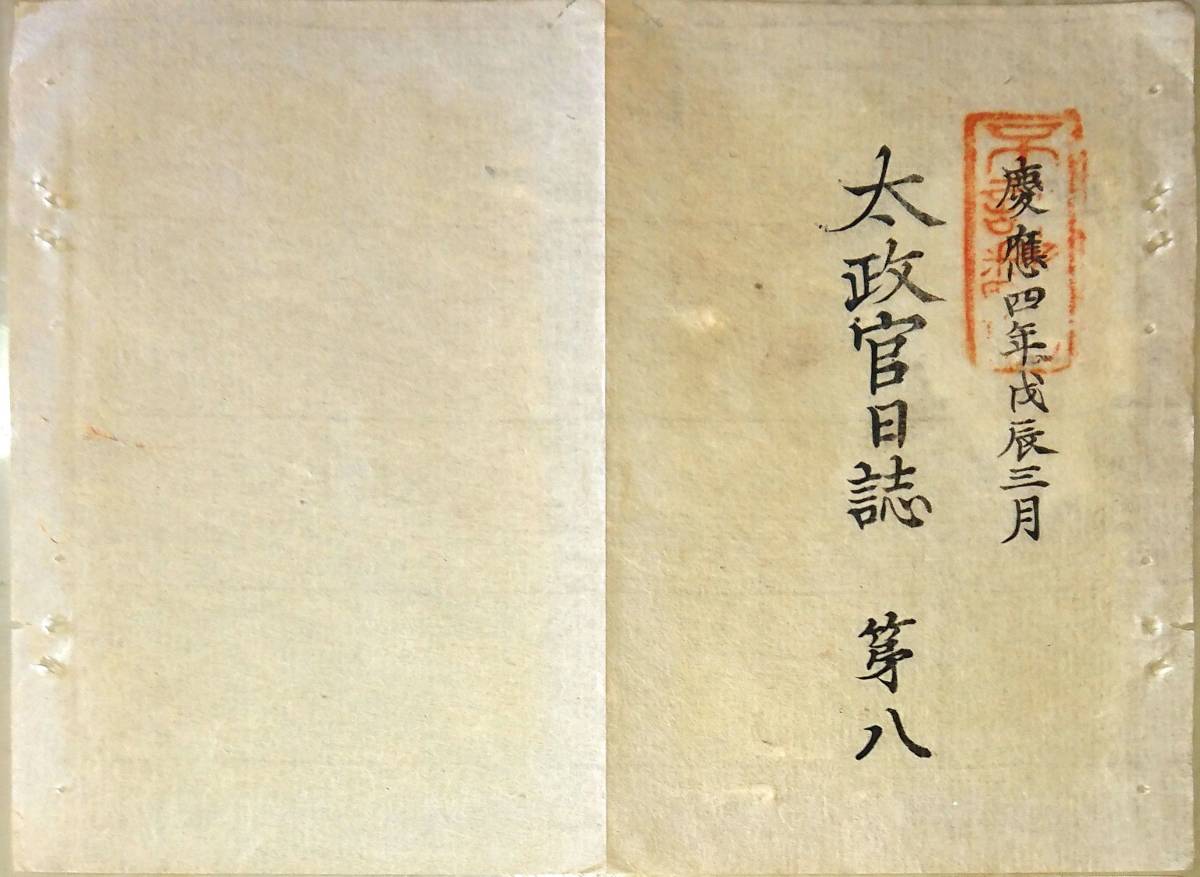 慶應四年戊辰三月
太政官日誌 第八